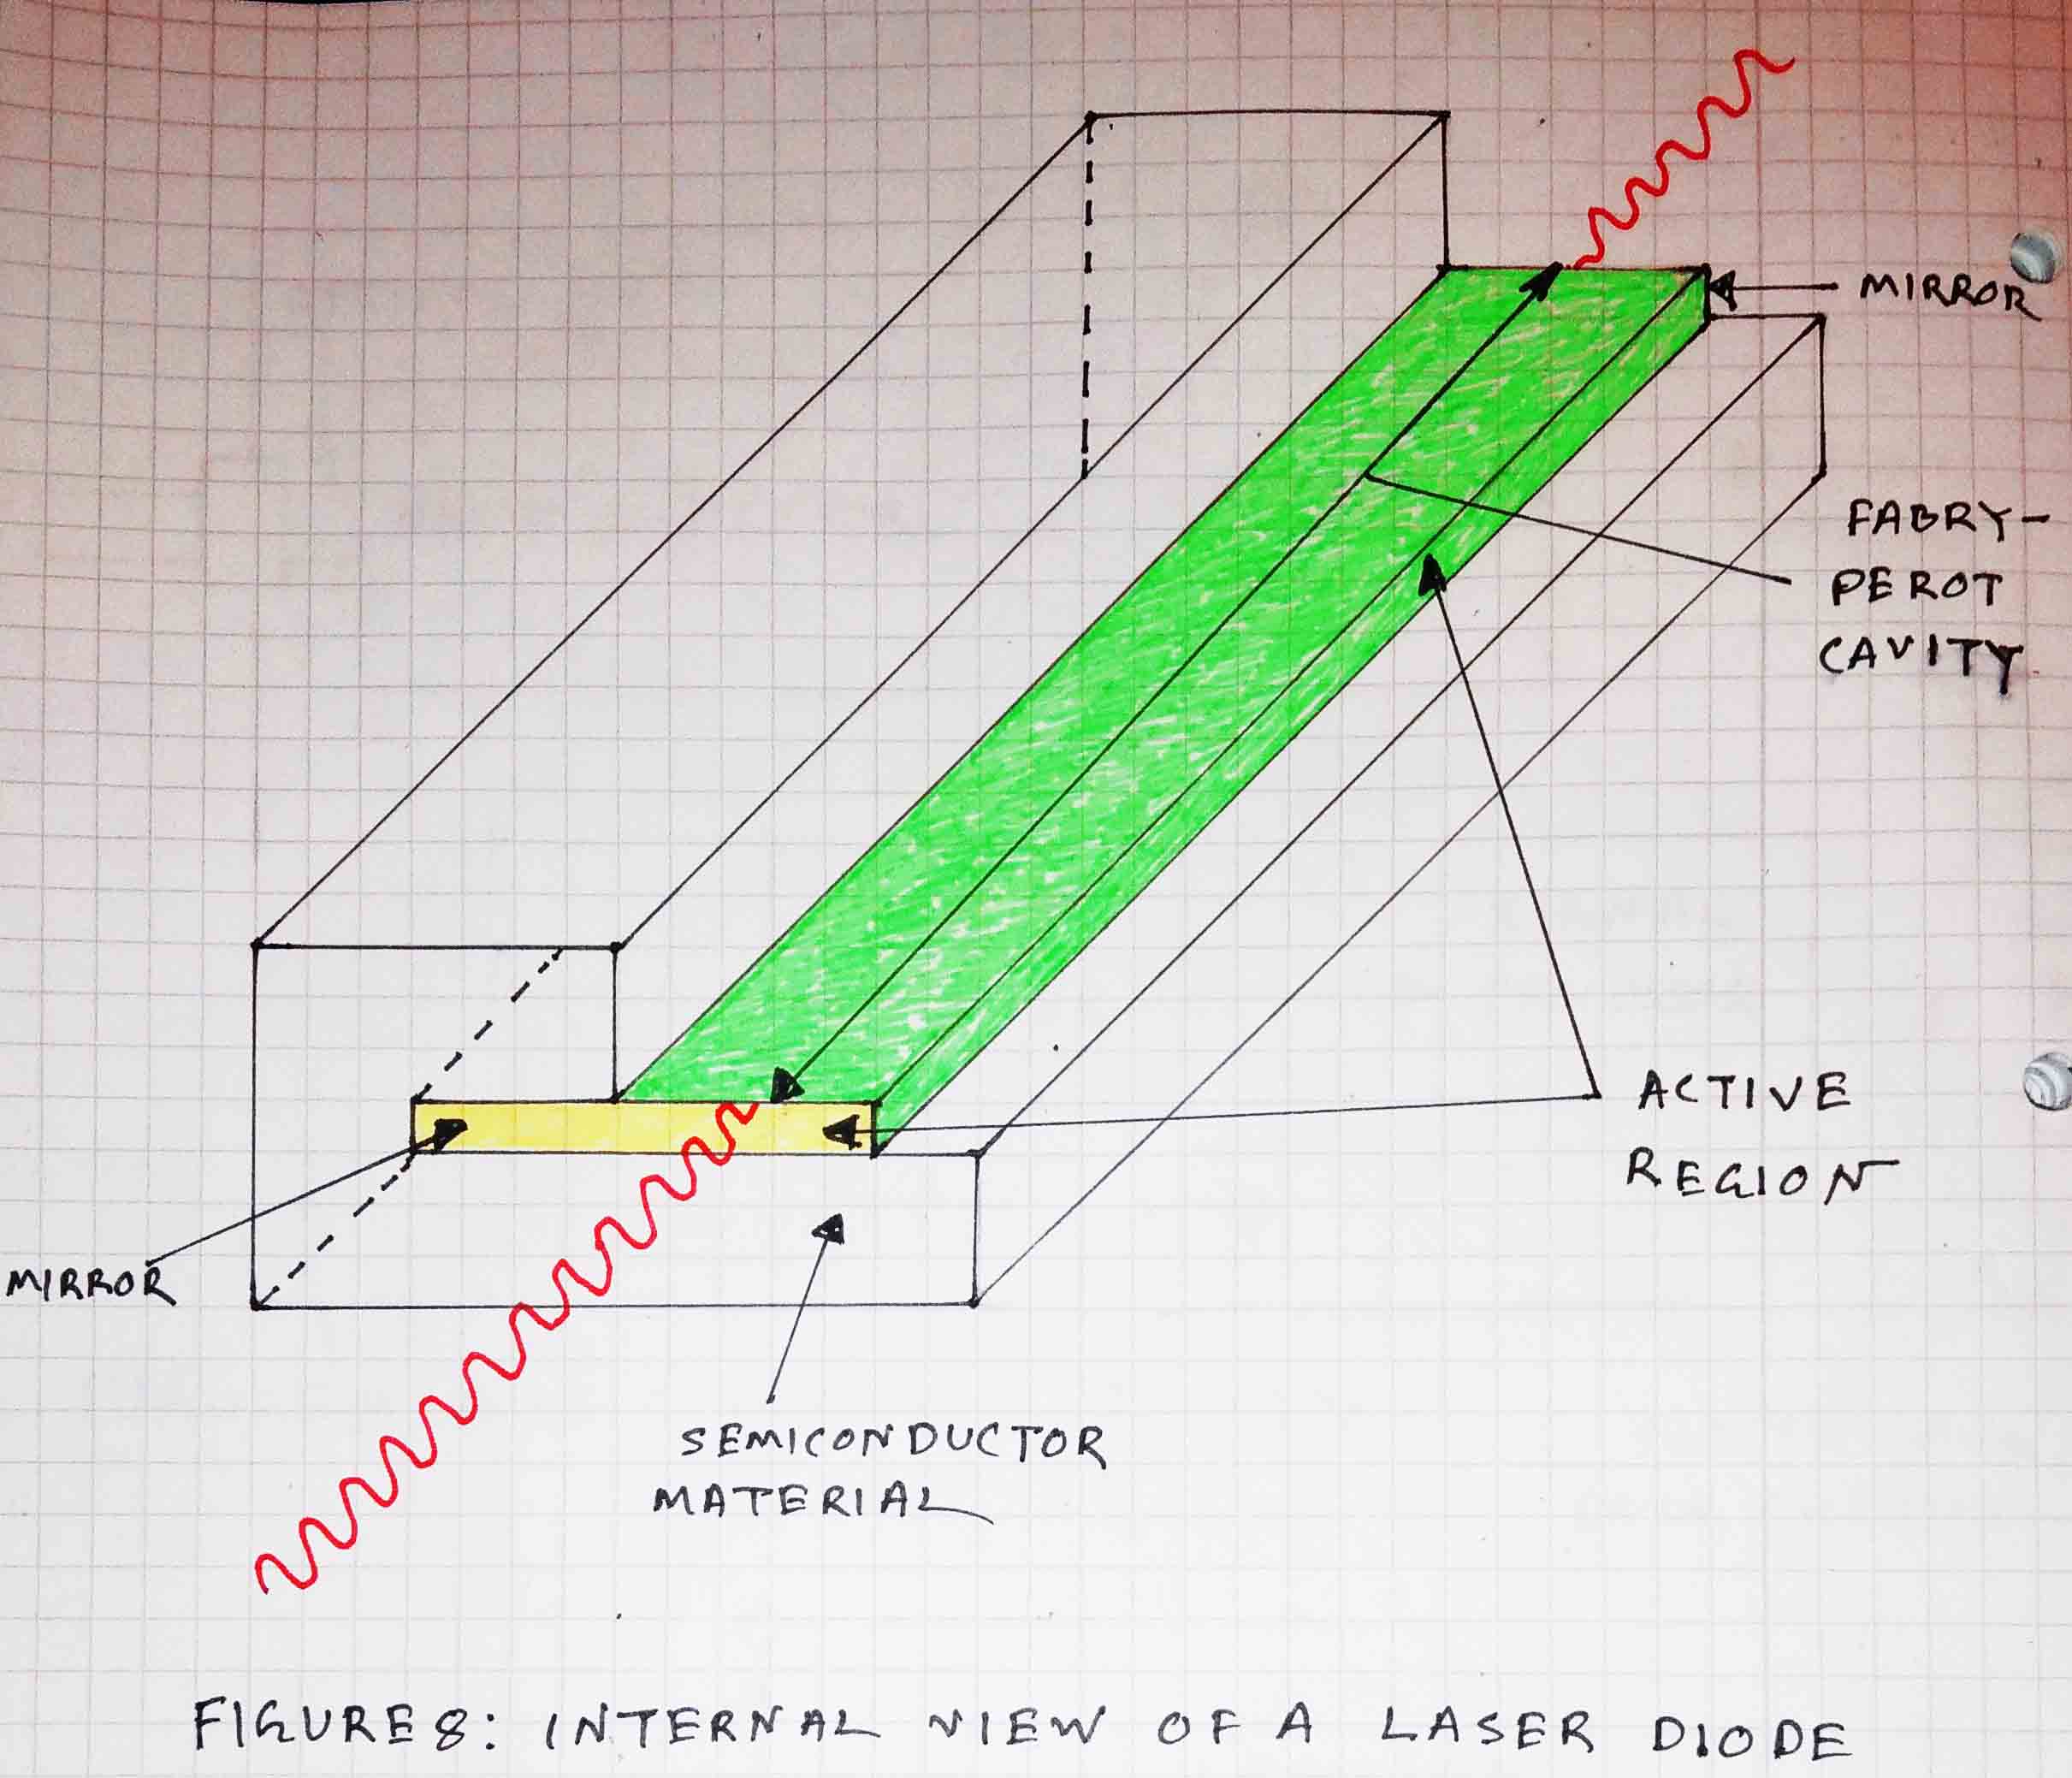 MIRROR
FABRY-
PEROT
CAVITY
ACTIVE
REGION
MIRROR
SEMICONDUCTOR
MATERIAL
FIGURE 8: INTERNAL VIEW OF A LASER DIODE